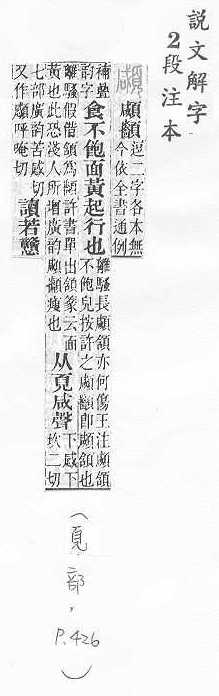 說文解字
2段注本
顑
顑顲
逗二字各本無
今依全書通例
補疊
韵字
食不飽面黃起行也
離騷長顑頷亦何傷王注顑頷
不飽皃按許之顑顲卽顑頷也
離騷假借頷爲顲許書單出頷篆云面
黃也此恐淺人所增廣韵顑顲瘦也
从頁咸聲
下感下
坎二切
七部廣韵苦感切
又作顲呼唵切
讀若戇
(頁部,P.426)